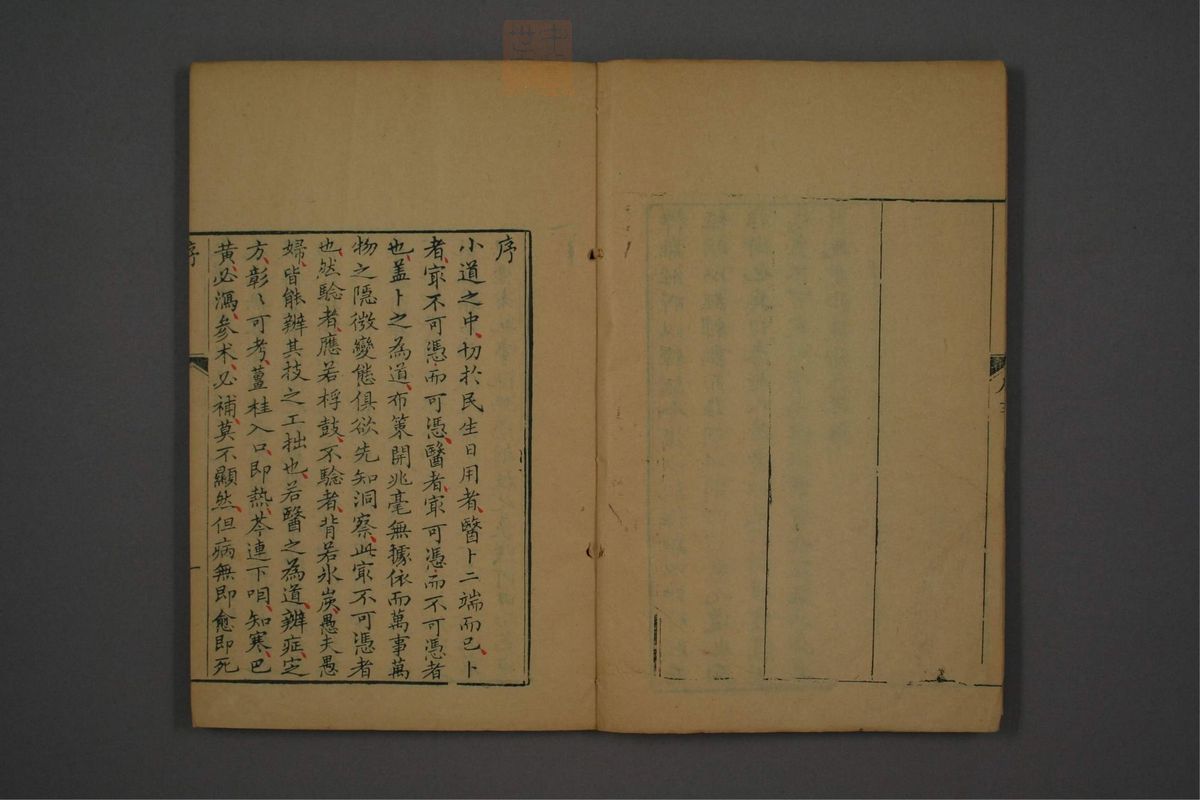 序
小道之中切於民生日用者醫卜二端而已卜
者㝡不可憑而可憑醫者㝡可憑而不可憑者
也蓋卜之為道布策開兆毫無據依而萬事萬
物之隱微變態俱欲先知洞察此㝡不可憑者
也然驗者應若桴鼓不驗者背若氷炭愚夫愚
婦皆能辨其技之工拙也若醫之為道辨症定
方彰〻可考薑桂入口即熱芩連下咽知寒巴
黄必瀉参术必補莫不顯然但病無即愈即死
序
一